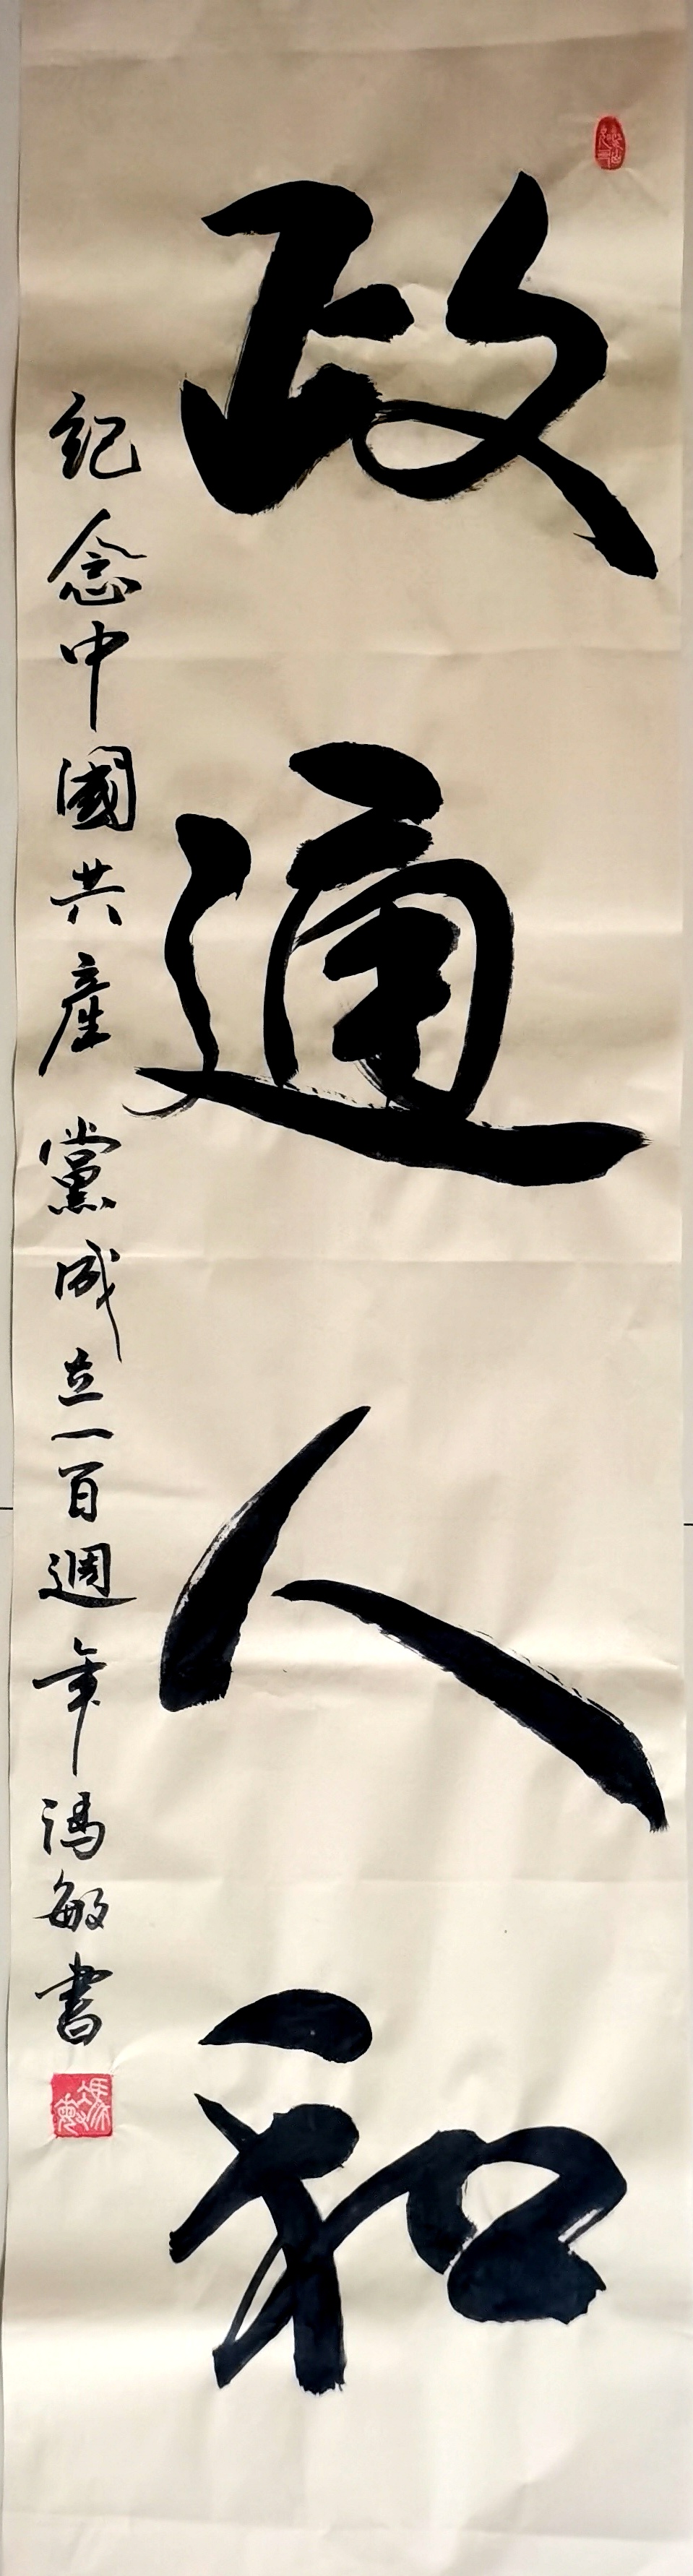 政通人和
紀念中國共產黨成立一百週年馮敏書